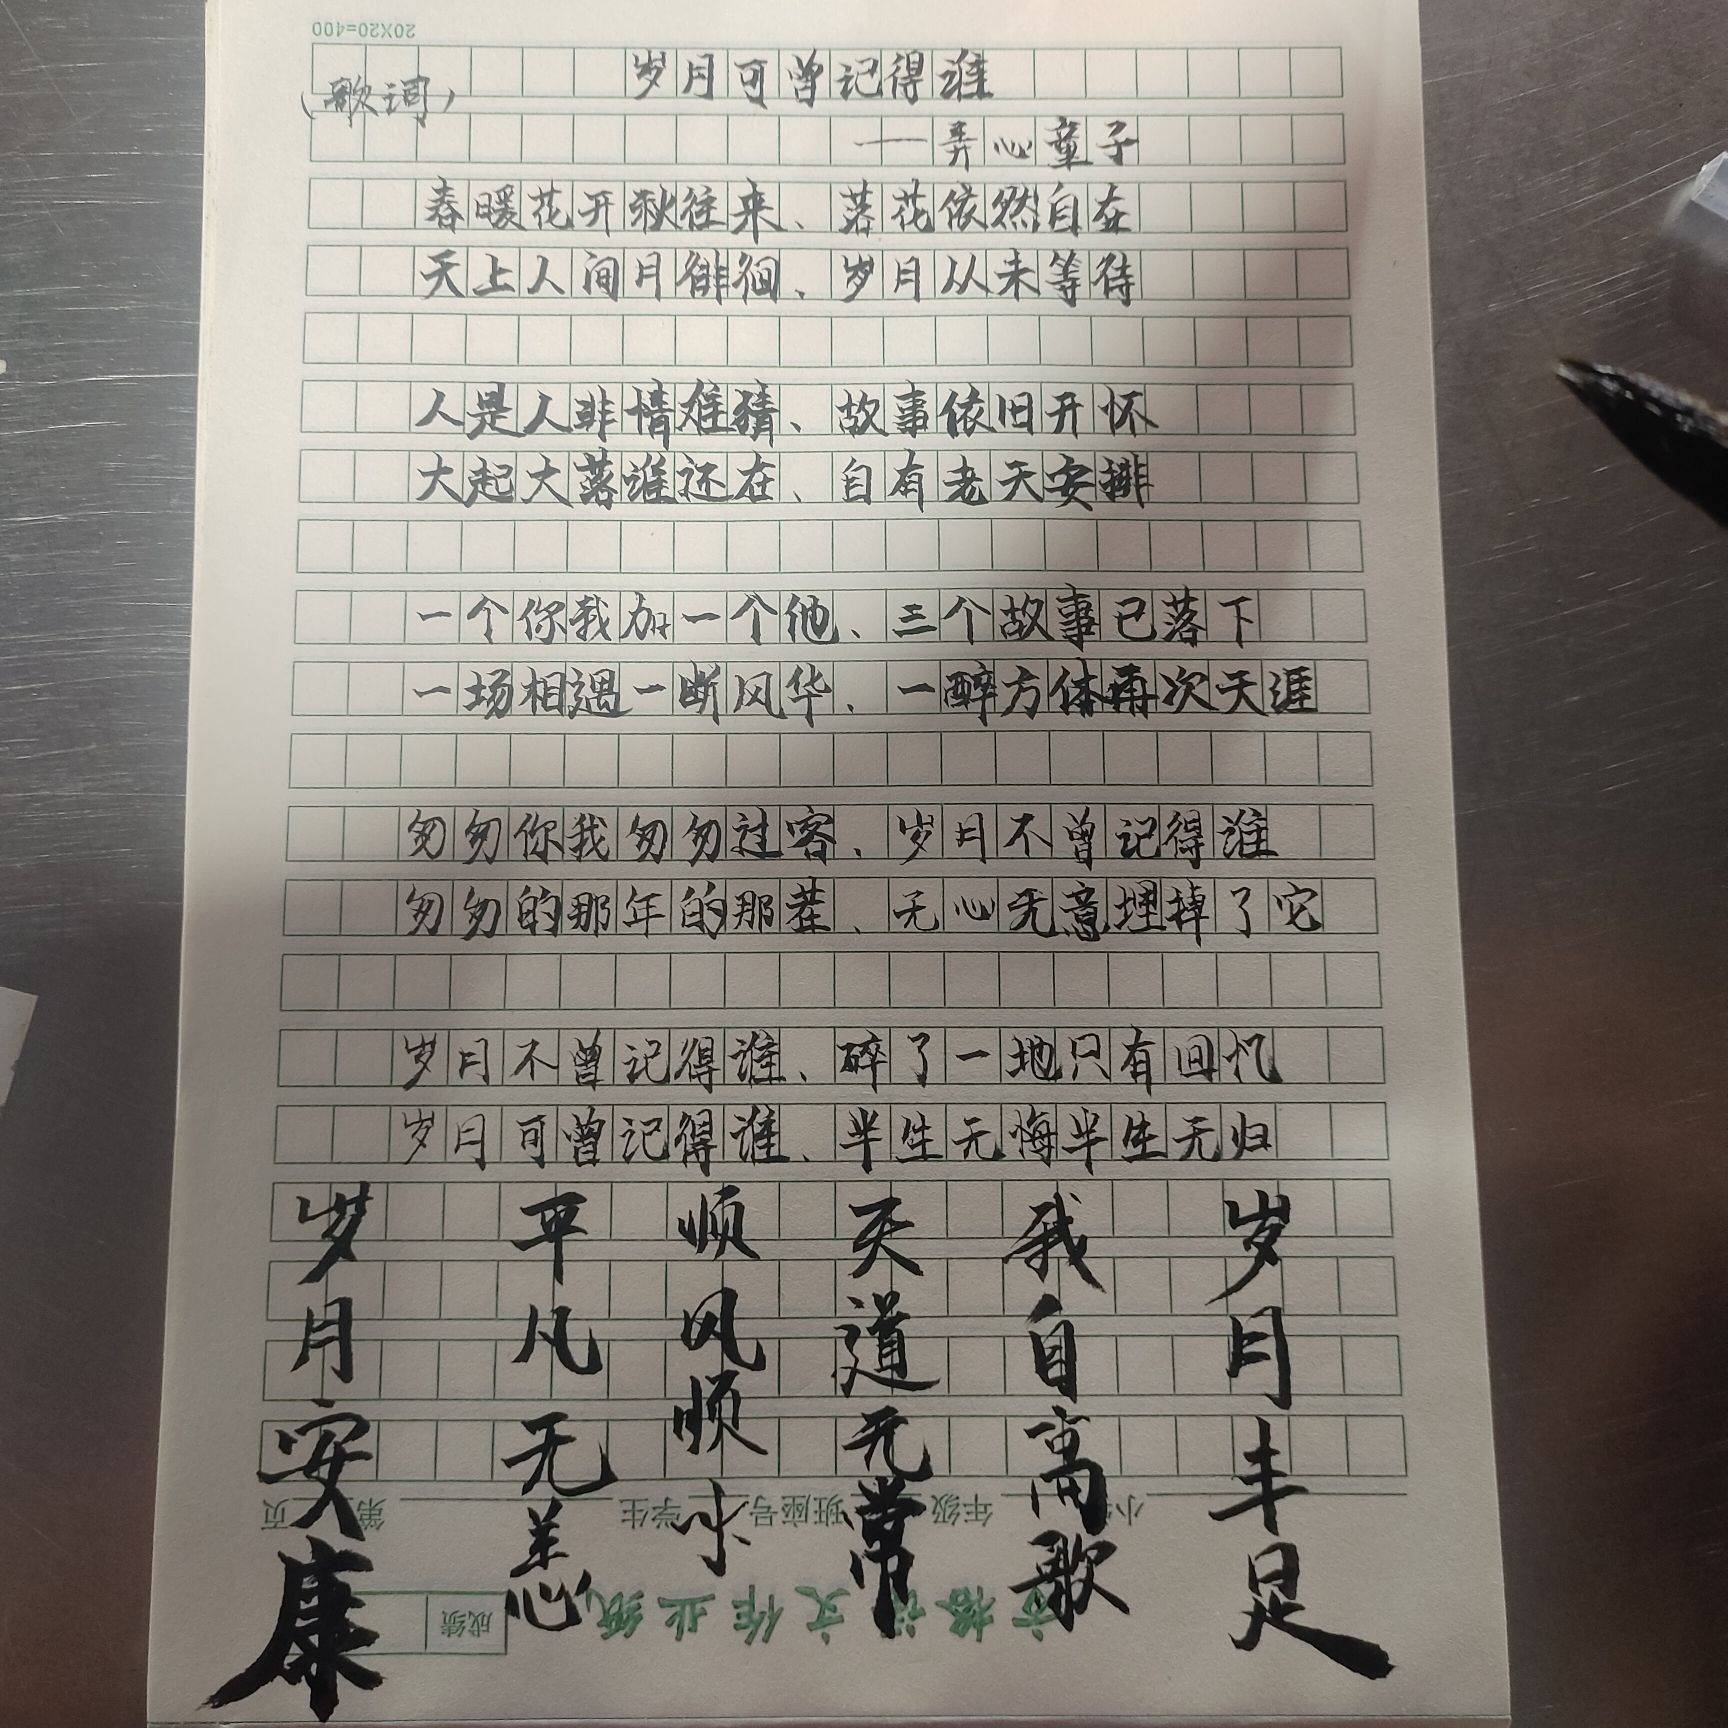 20X20=400
岁月可曾记得谁
（歌词）
——弄心童子
春暖花开秋往来、落花依然自在
天上人间月徘徊、岁月从未等待
人是人非情难猜、故事依旧开怀
大起大落谁还在、自有老天安排
一个你我加一个他、三个故事已落下
一场相遇一断风华、一醉方休再次天涯
匆匆你我匆匆过客、岁月不曾记得谁
匆匆的那年的那茬、无心无意埋掉了它
岁月不曾记得谁、碎了一地只有回忆
岁月可曾记得谁、半生无悔半生无归
岁月丰足
我自高歌
天道无常
顺风顺水
平凡无恙
岁月安康
小学 年级 班座号 学生 第 页
方格语文作业纸
成绩